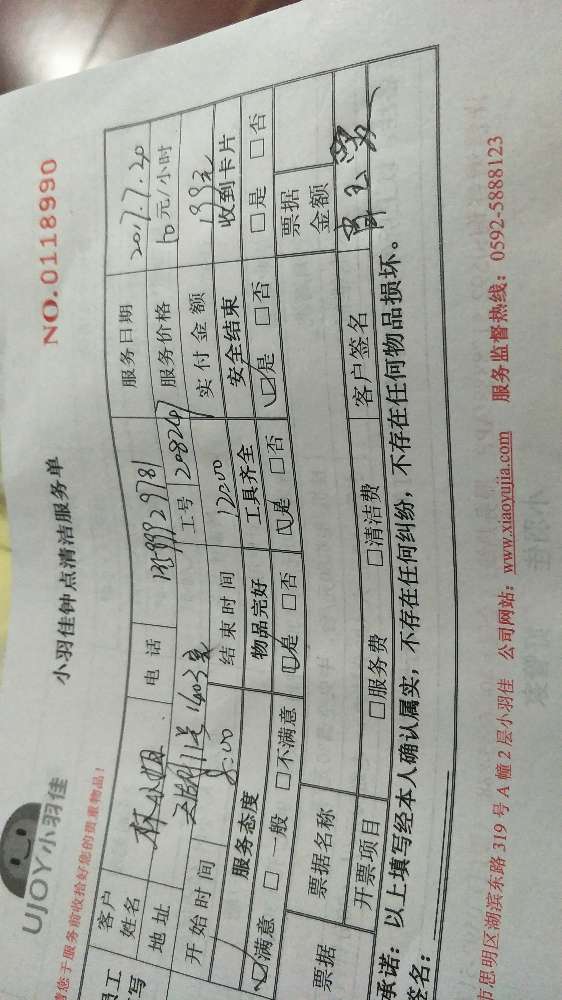 UJOY小羽佳
小羽佳钟点清洁服务单
NO.0118990
请您于服务前收拾好您的贵重物品！
员工
填写
客户
姓名
林小姐
电话
服务日期
2017.7.20
地址
11号1403室
工号
208247
服务价格
元/小时
开始时间
8:00
结束时间
12:00
实付金额
服务态度
物品完好
工具齐全
安全结束
收到卡片
☑满意 □一般 □不满意
☑是 □否
☑是 □否
☑是 □否
□是 □否
票据
票据名称
票据
金额
开票项目
□服务费
□清洁费
客户签名
承诺：以上填写经本人确认属实，不存在任何纠纷，不存在任何物品损坏。
签名：
市思明区湖滨东路319号A幢2层小羽佳 公司网站：www.xiaoyujia.com 服务监督热线：0592-5888123